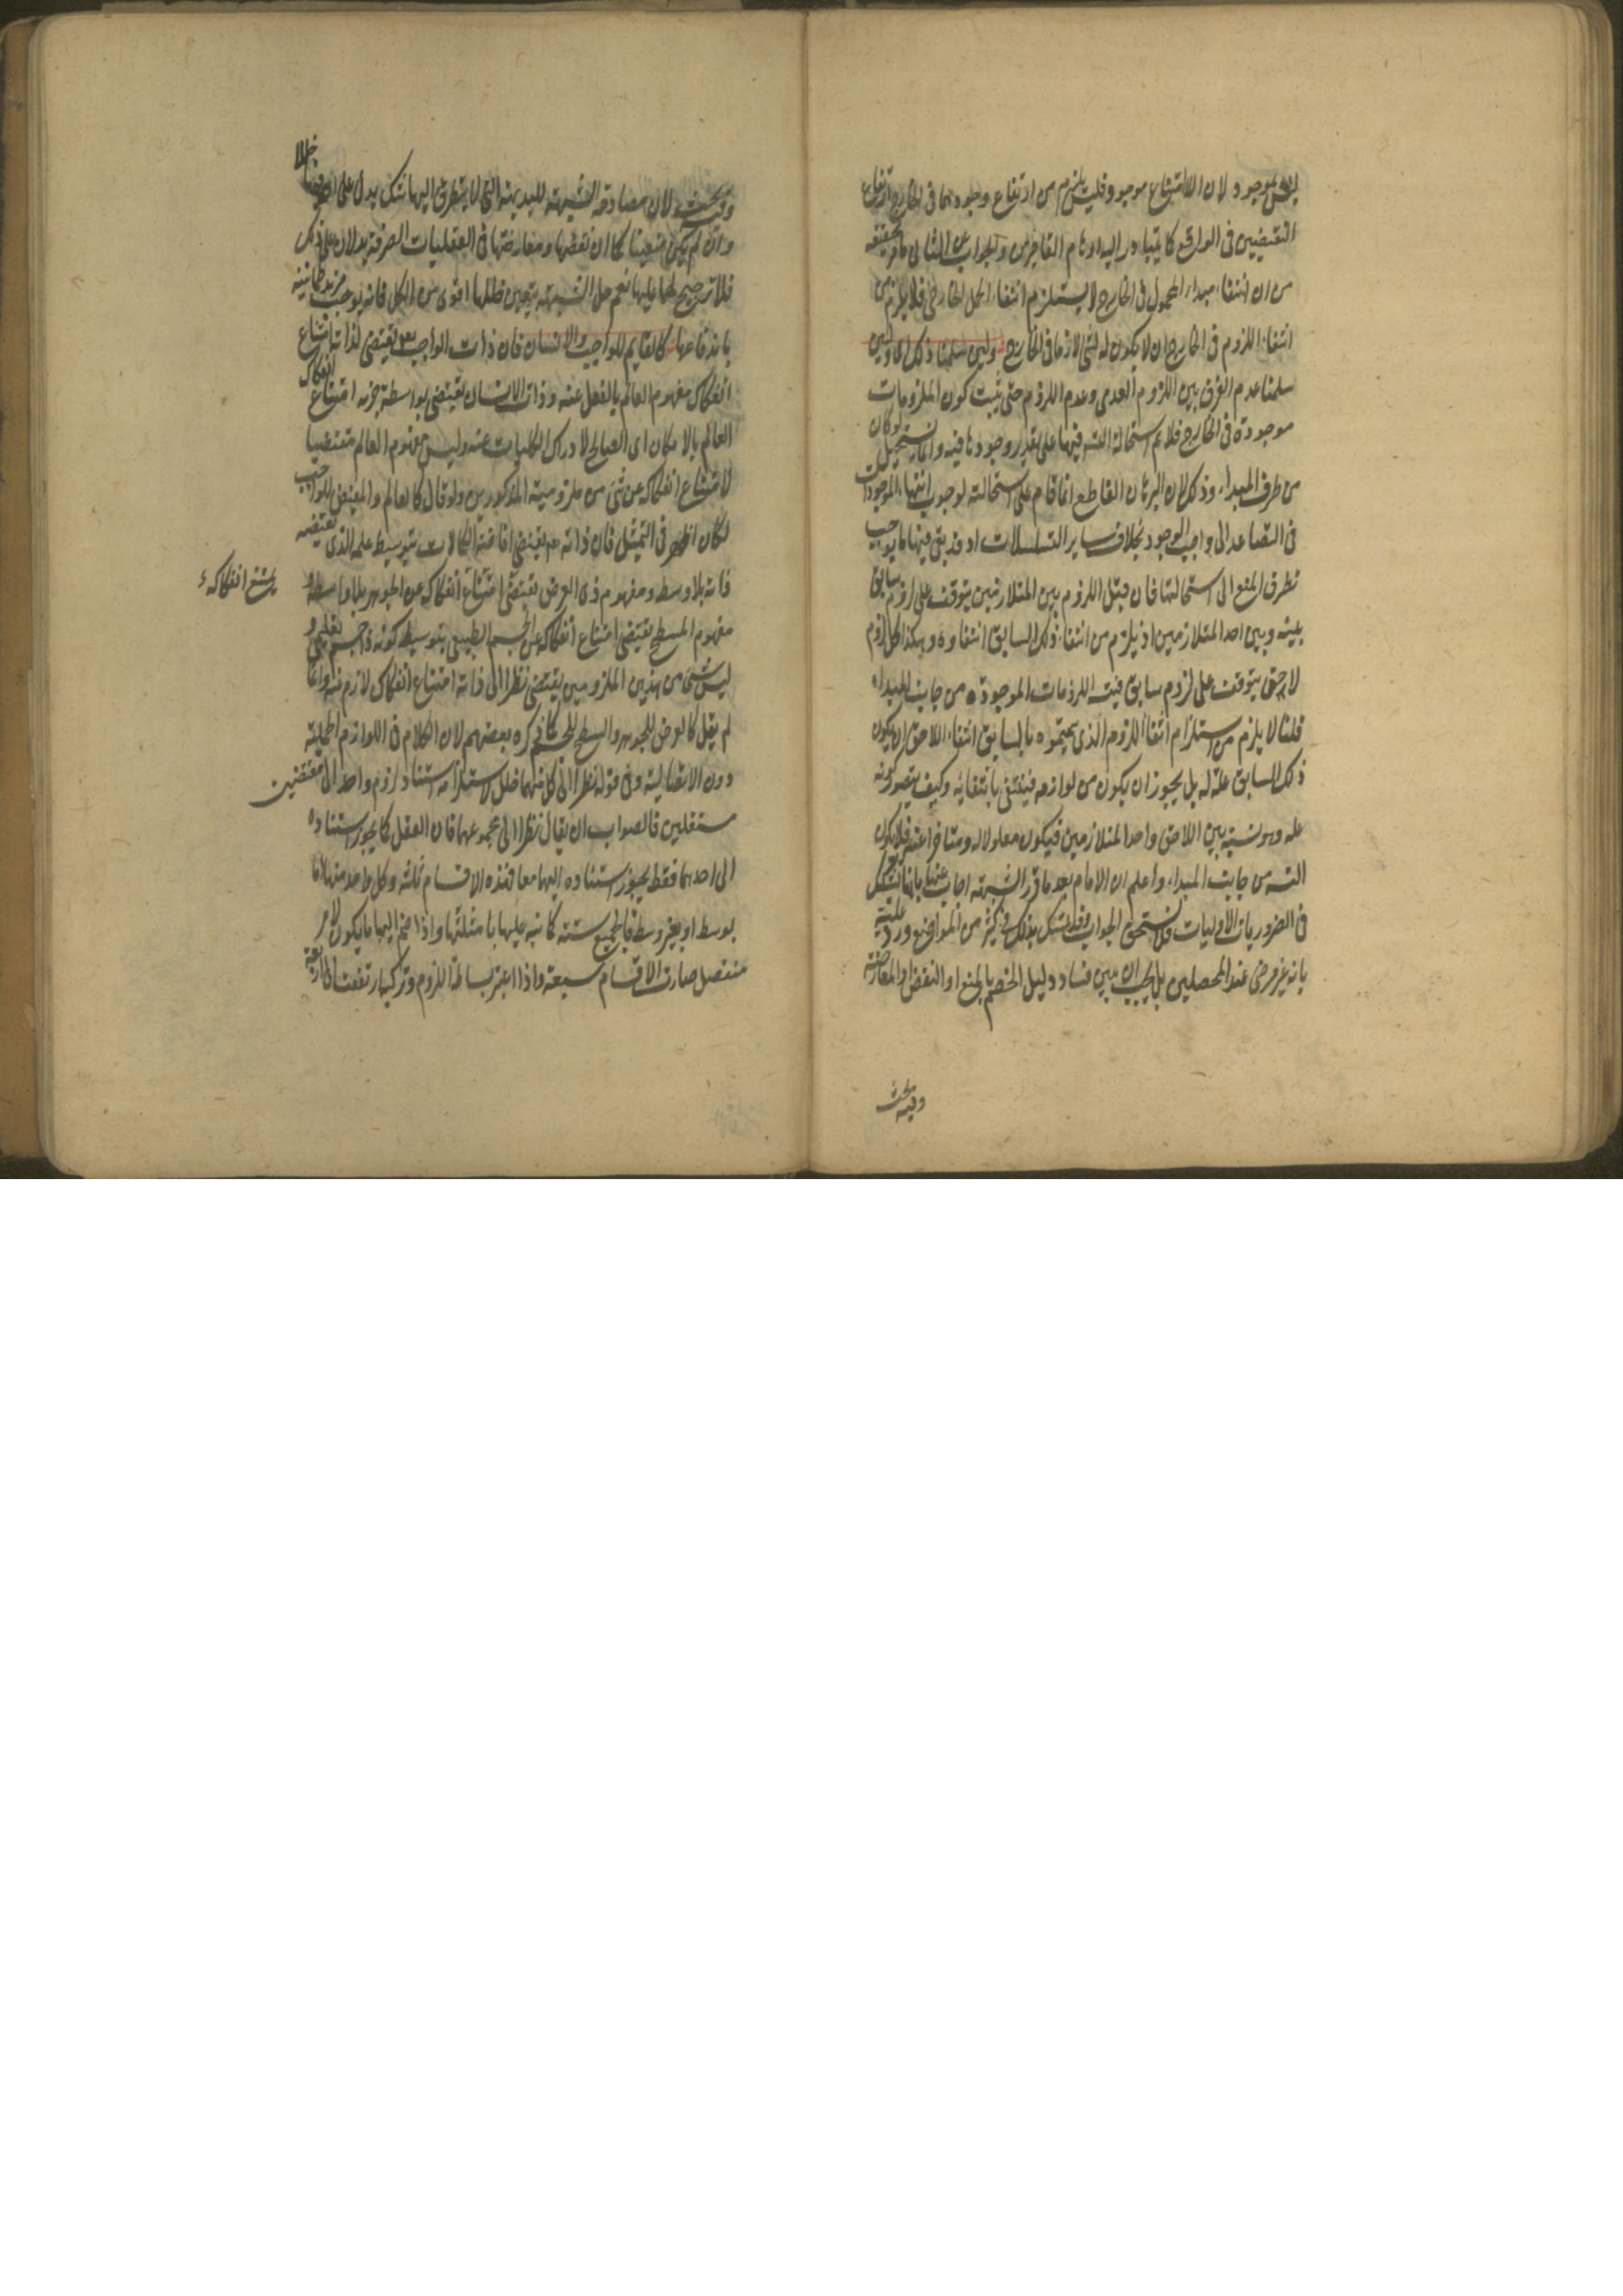 ليس بموجود لان الامتناع موجود فليس يلزم من ارتفاع وجودهما فى الخارج ارتفاع
النقيضين فى الواقع كما يتبادر اليه اوهام القاصرين والجواب عن الثانى ما مر تحقيقه
من ان انتفاء مبداء المحمول فى الخارج لا يستلزم انتفاء الحمل الخارجى فلا يلزم من
انتفاء اللزوم فى الخارج ان لا يكون له لشئ لازما فى الخارج ولئن سلمنا ذلك اى ولئن
سلمنا عدم الفرق بين اللزوم العدمى وعدم اللزوم حتى يثبت كون الملزومات
موجودة فى الخارج فلانم استحالة التسه فيها على تقدير وجودها فيه وانما يستحيل لو كان
من طرف المبداء وذلك لان البرهان القاطع انما قام على استحالته لوجوب انتهاء الموجودات
فى التصاعد الى واجب الوجود بخلاف ساير التسلسلات اذ قد بقى فيها ما يوجب
تطرق المنع الى استحالتها فان قيل اللزوم بين المتلازمين يتوقف على لزوم سابق
بينه وبين احد المتلازمين اذ يلزم من انتفاء ذلك السابق انتفاوه وهكذا كل لزوم
لاحق يتوقف على لزوم سابق فيتسه اللزومات الموجودة من جانب المبداء
قلنا لا يلزم من استلزام انتفاء اللزوم الذى سميتموه بالسابق انتفاء اللاحق ان يكون
ذلك السابق علة له بل يجوز ان يكون من لوازمه فينتفى بانتفايه وكيف يتصور كونه
عله وهو نسبة بين اللاحق واحد المتلازمين فيكون معلولا له ومتاخرا عنه فلا يكون
التسه من جانب المبداء واعلم ان الامام بعد ما قرر الشبهه اجاب عنها بانها تشكيك
فى الضروريات الاوليات فلا تستحق الجواب وقد تمسك بذلك فى كثير من المواضع ورد عليه
بانه غير مرضى عند المحصلين بل يجب ان يبين فساد دليل الخصم بالمنع او النقض او المعارضة
وفيه بحث
وفيه بحث لان مصادمة الشبهه للبديهة التى لا يتطرق اليها شك يدل على ان فيها خللا
وان لم يكن متعينا كما ان نقضها ومعارضتها فى العقليات الصرفة يدلان على ذلك
فلا ترجيح لهما عليها نعم حل الشبهه بتعيين خللها اقوى من الكل فانه يوجب مزيد طمانينه
باندفاعها كالعالم للواجب والانسان فان ذات الواجب تع يقتضى لذاته امتناع
انفكاك مفهوم العالم بالفعل عنه وذات الانسان يقتضى بواسطة جزءه امتناع انفكاك
العالم بالامكان اى الصالح لادراك الكليات عنه وليس مفهوم العالم مقتضيا
لامتناع انفكاكه عن شئ من ملزوميه المذكورين ولو قال كالعالم والمفيض للواجب
لكان اظهر فى التمثيل فان ذاته تع يقتضى افاضة الكمالات بتوسيط علمه الذى يقتضيه
ذاته بلا وسط ومفهوم ذى العرض يقتضى امتناع انفكاكه عن الجوهر بلا واسطه و
يمتنع انفكاكه
مفهوم المسطح يقتضى امتناع انفكاكه عن الجسم الطبيعى بتوسيط كونه ذا جسم تعليمى و
ليس شئ من هذين الملزومين يقتضى نظرا الى ذاته امتناع انفكاك لازمه عنه وانما
لم يقل كالعرض للجوهر والسطح للجسم كما ذكره بعضهم لان الكلام فى اللوازم الحملية
دون الاتصالية وفى قوله نظرا الى كل منهما خلل لاستلزامه استناد لزوم واحد الى مقتضيين
مستقلين فالصواب ان يقال نظرا الى مجموعهما فان العقل كما يجوز استناده
الى احدهما فقط يجوز استناده اليهما معا فهذه الاقسام ثلثه وكل واحد منها اما
بوسط او بغير وسط فالجميع ستة كما نبه عليها بامثلتها واذا ضم اليها ما يكون لامر
منفصل صارت الاقسام سبعة واذا اعتبر بساطة اللزوم وتركبه ارتفعت الى اربعة